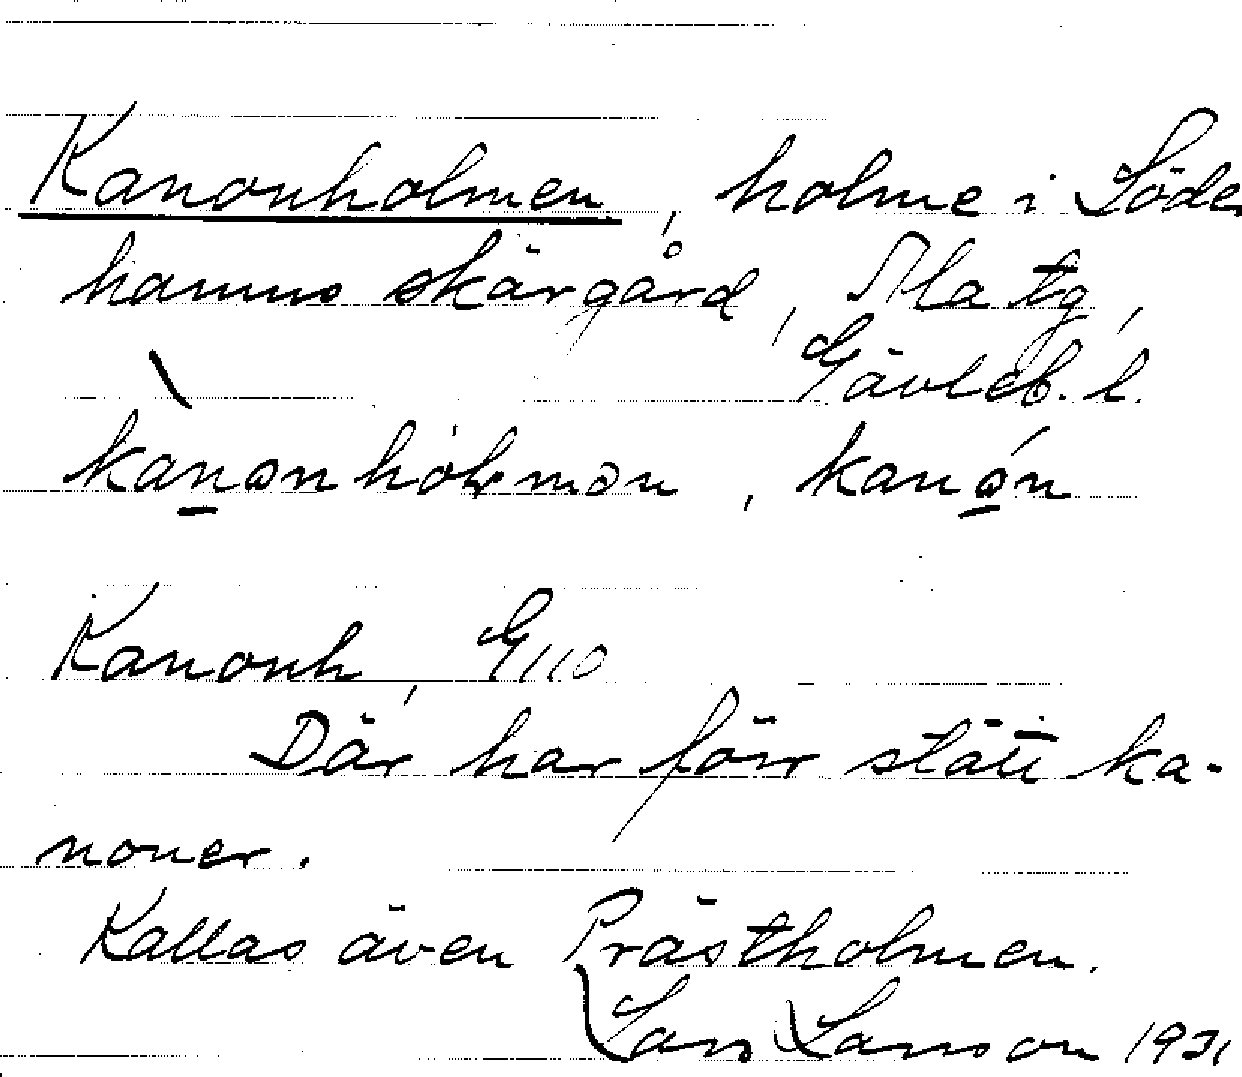 Kanonholmen, holme i Söder
hamns skärgård, Ala tg,
Gävleb. l.
kanonh
Kanonh, G110
Där har förr stått ka-
noner.
Kallas även Prästholmen.
Lars Larsson 1931